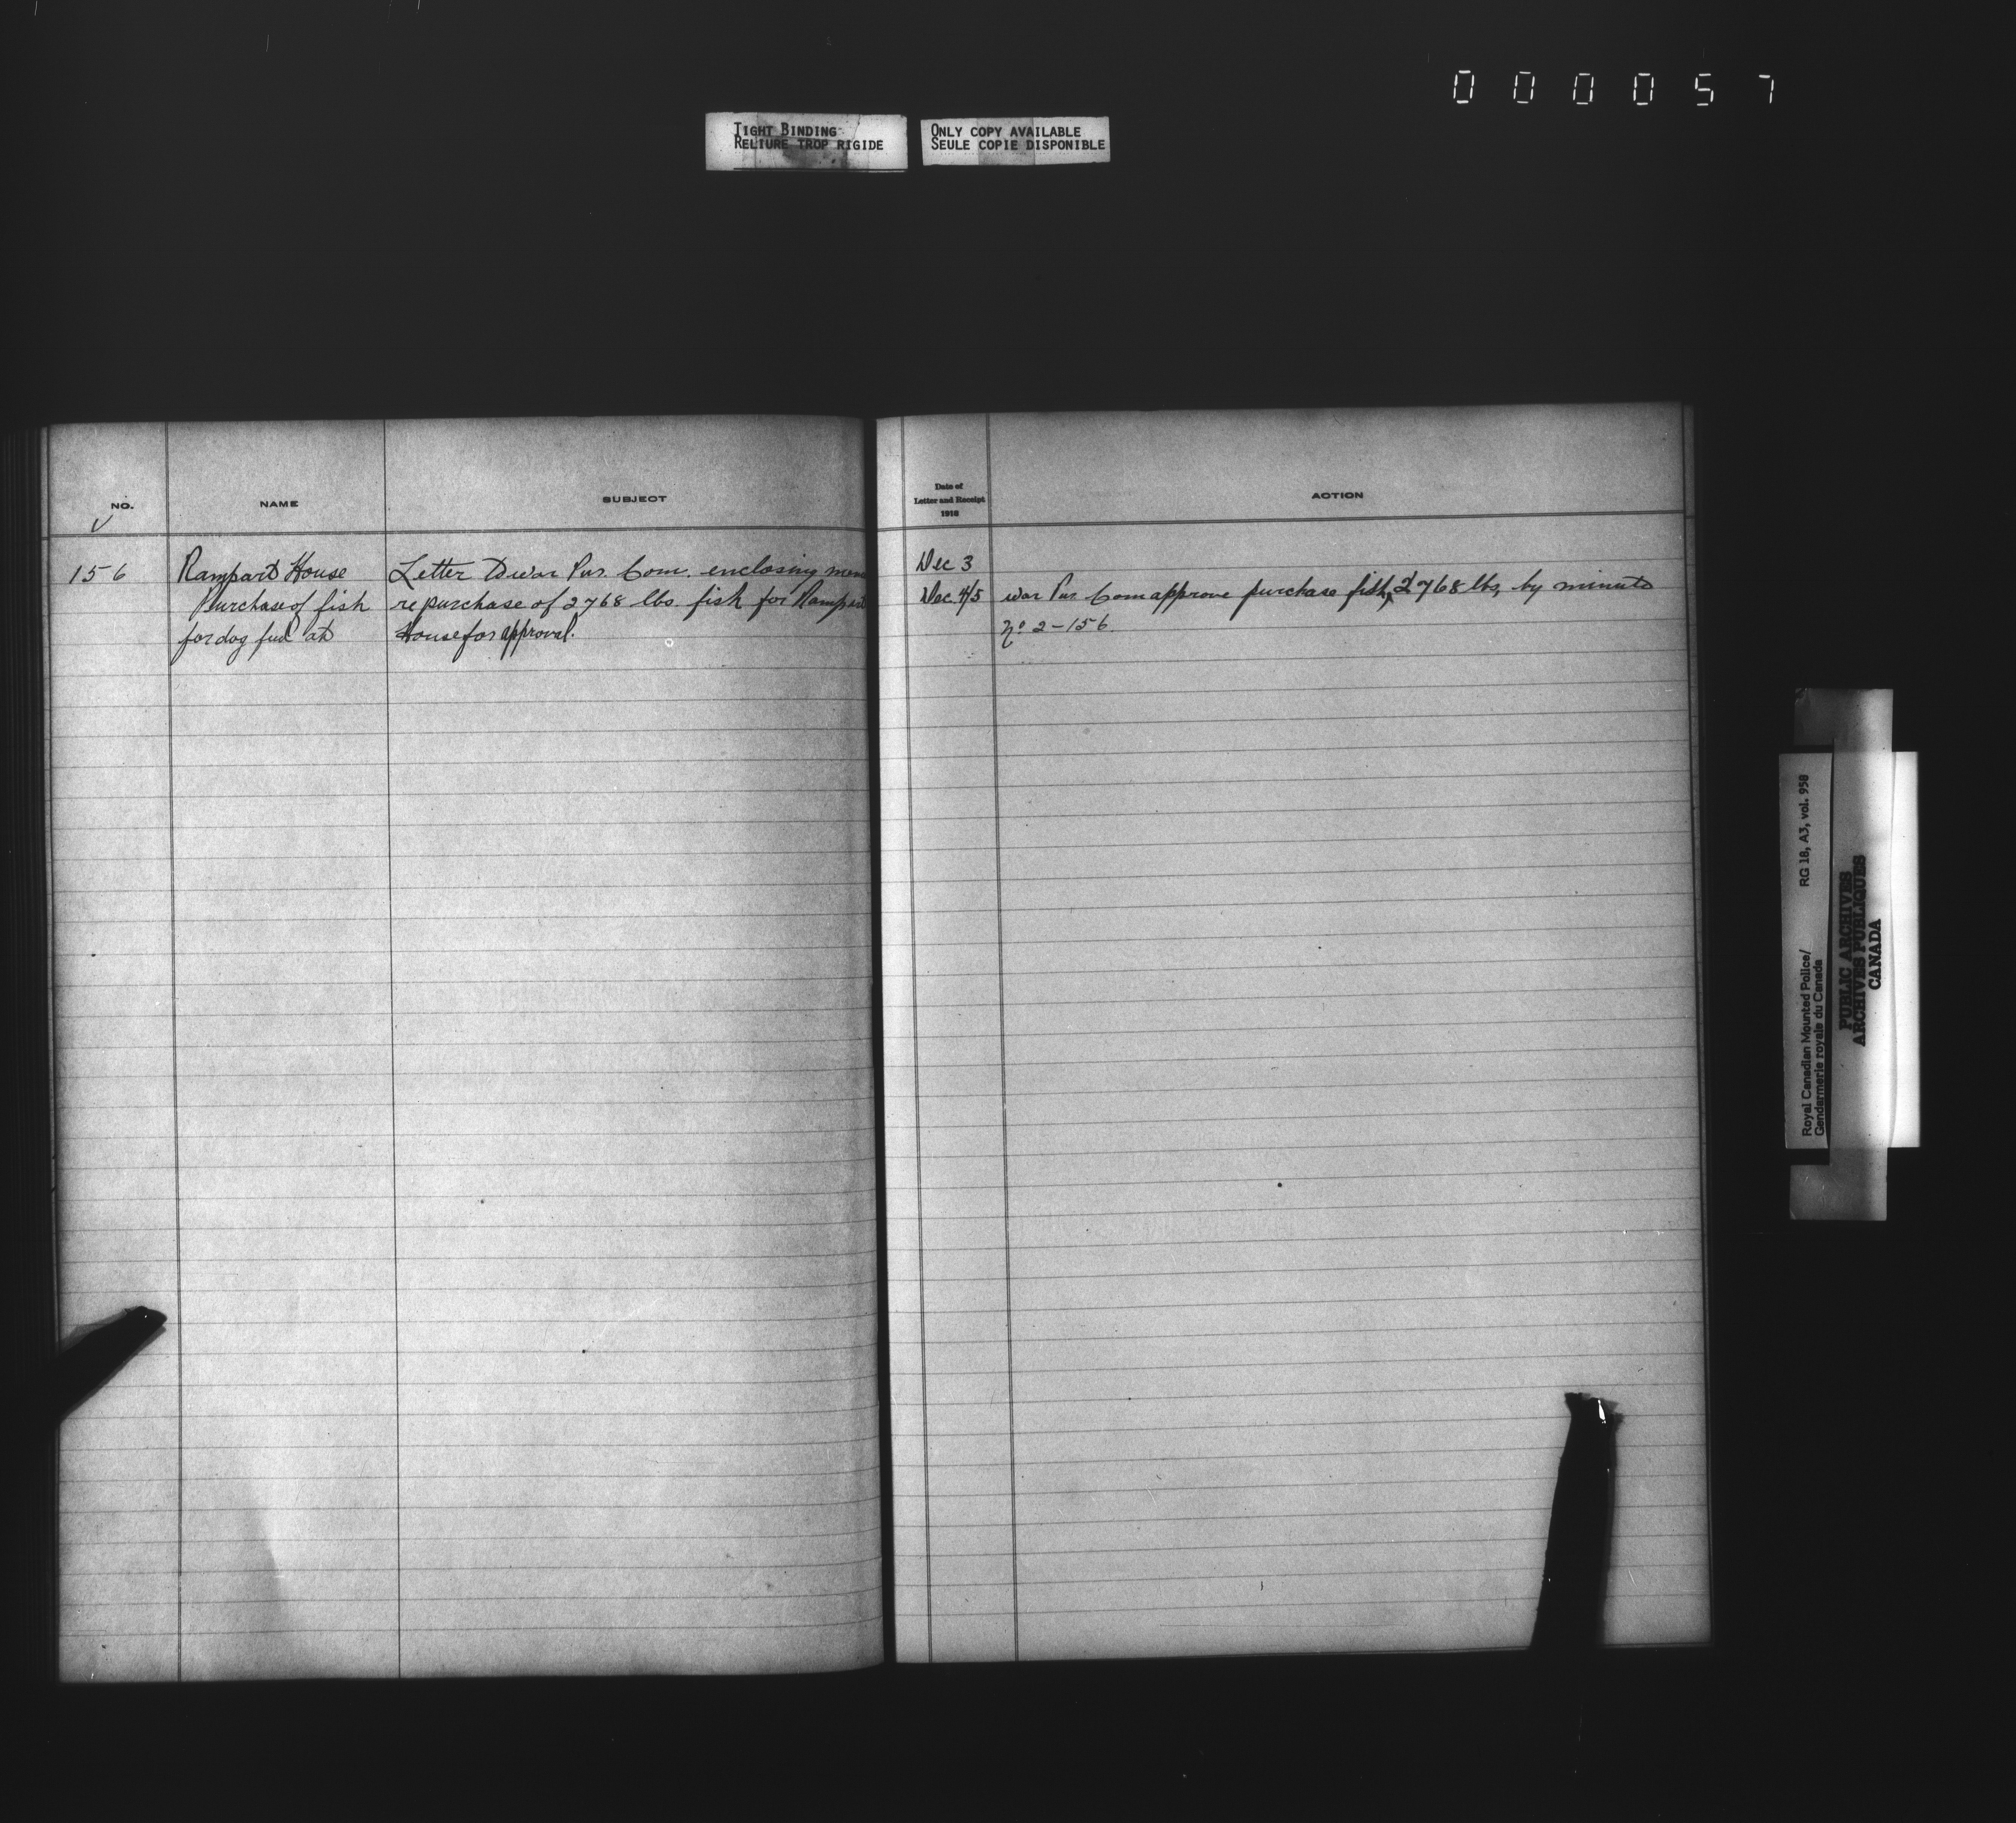 000057
TIGHT BINDING
RELIURE TROP RIGIDE
ONLY COPY AVAILABLE
SEULE COPIE DISPONIBLE
NO.
NAME
SUBJECT
156
Rampart House
Purchase of fish
for dog feed at
Letter to War Pur. Com. enclosing mem
re purchase of 2768 lbs. fish for Rampart
House for approval.
Date of
Letter and Receipt
1918
ACTION
Dec 3
Dec 4/5
War Pur Com approve purchase fish, 2768 lbs, by minute
No 2-156.
Royal Canadian Mounted Police/
Gendarmerie royale du Canada
RG 18, A3, vol. 958
PUBLIC ARCHIVES
ARCHIVES PUBLIQUES
CANADA